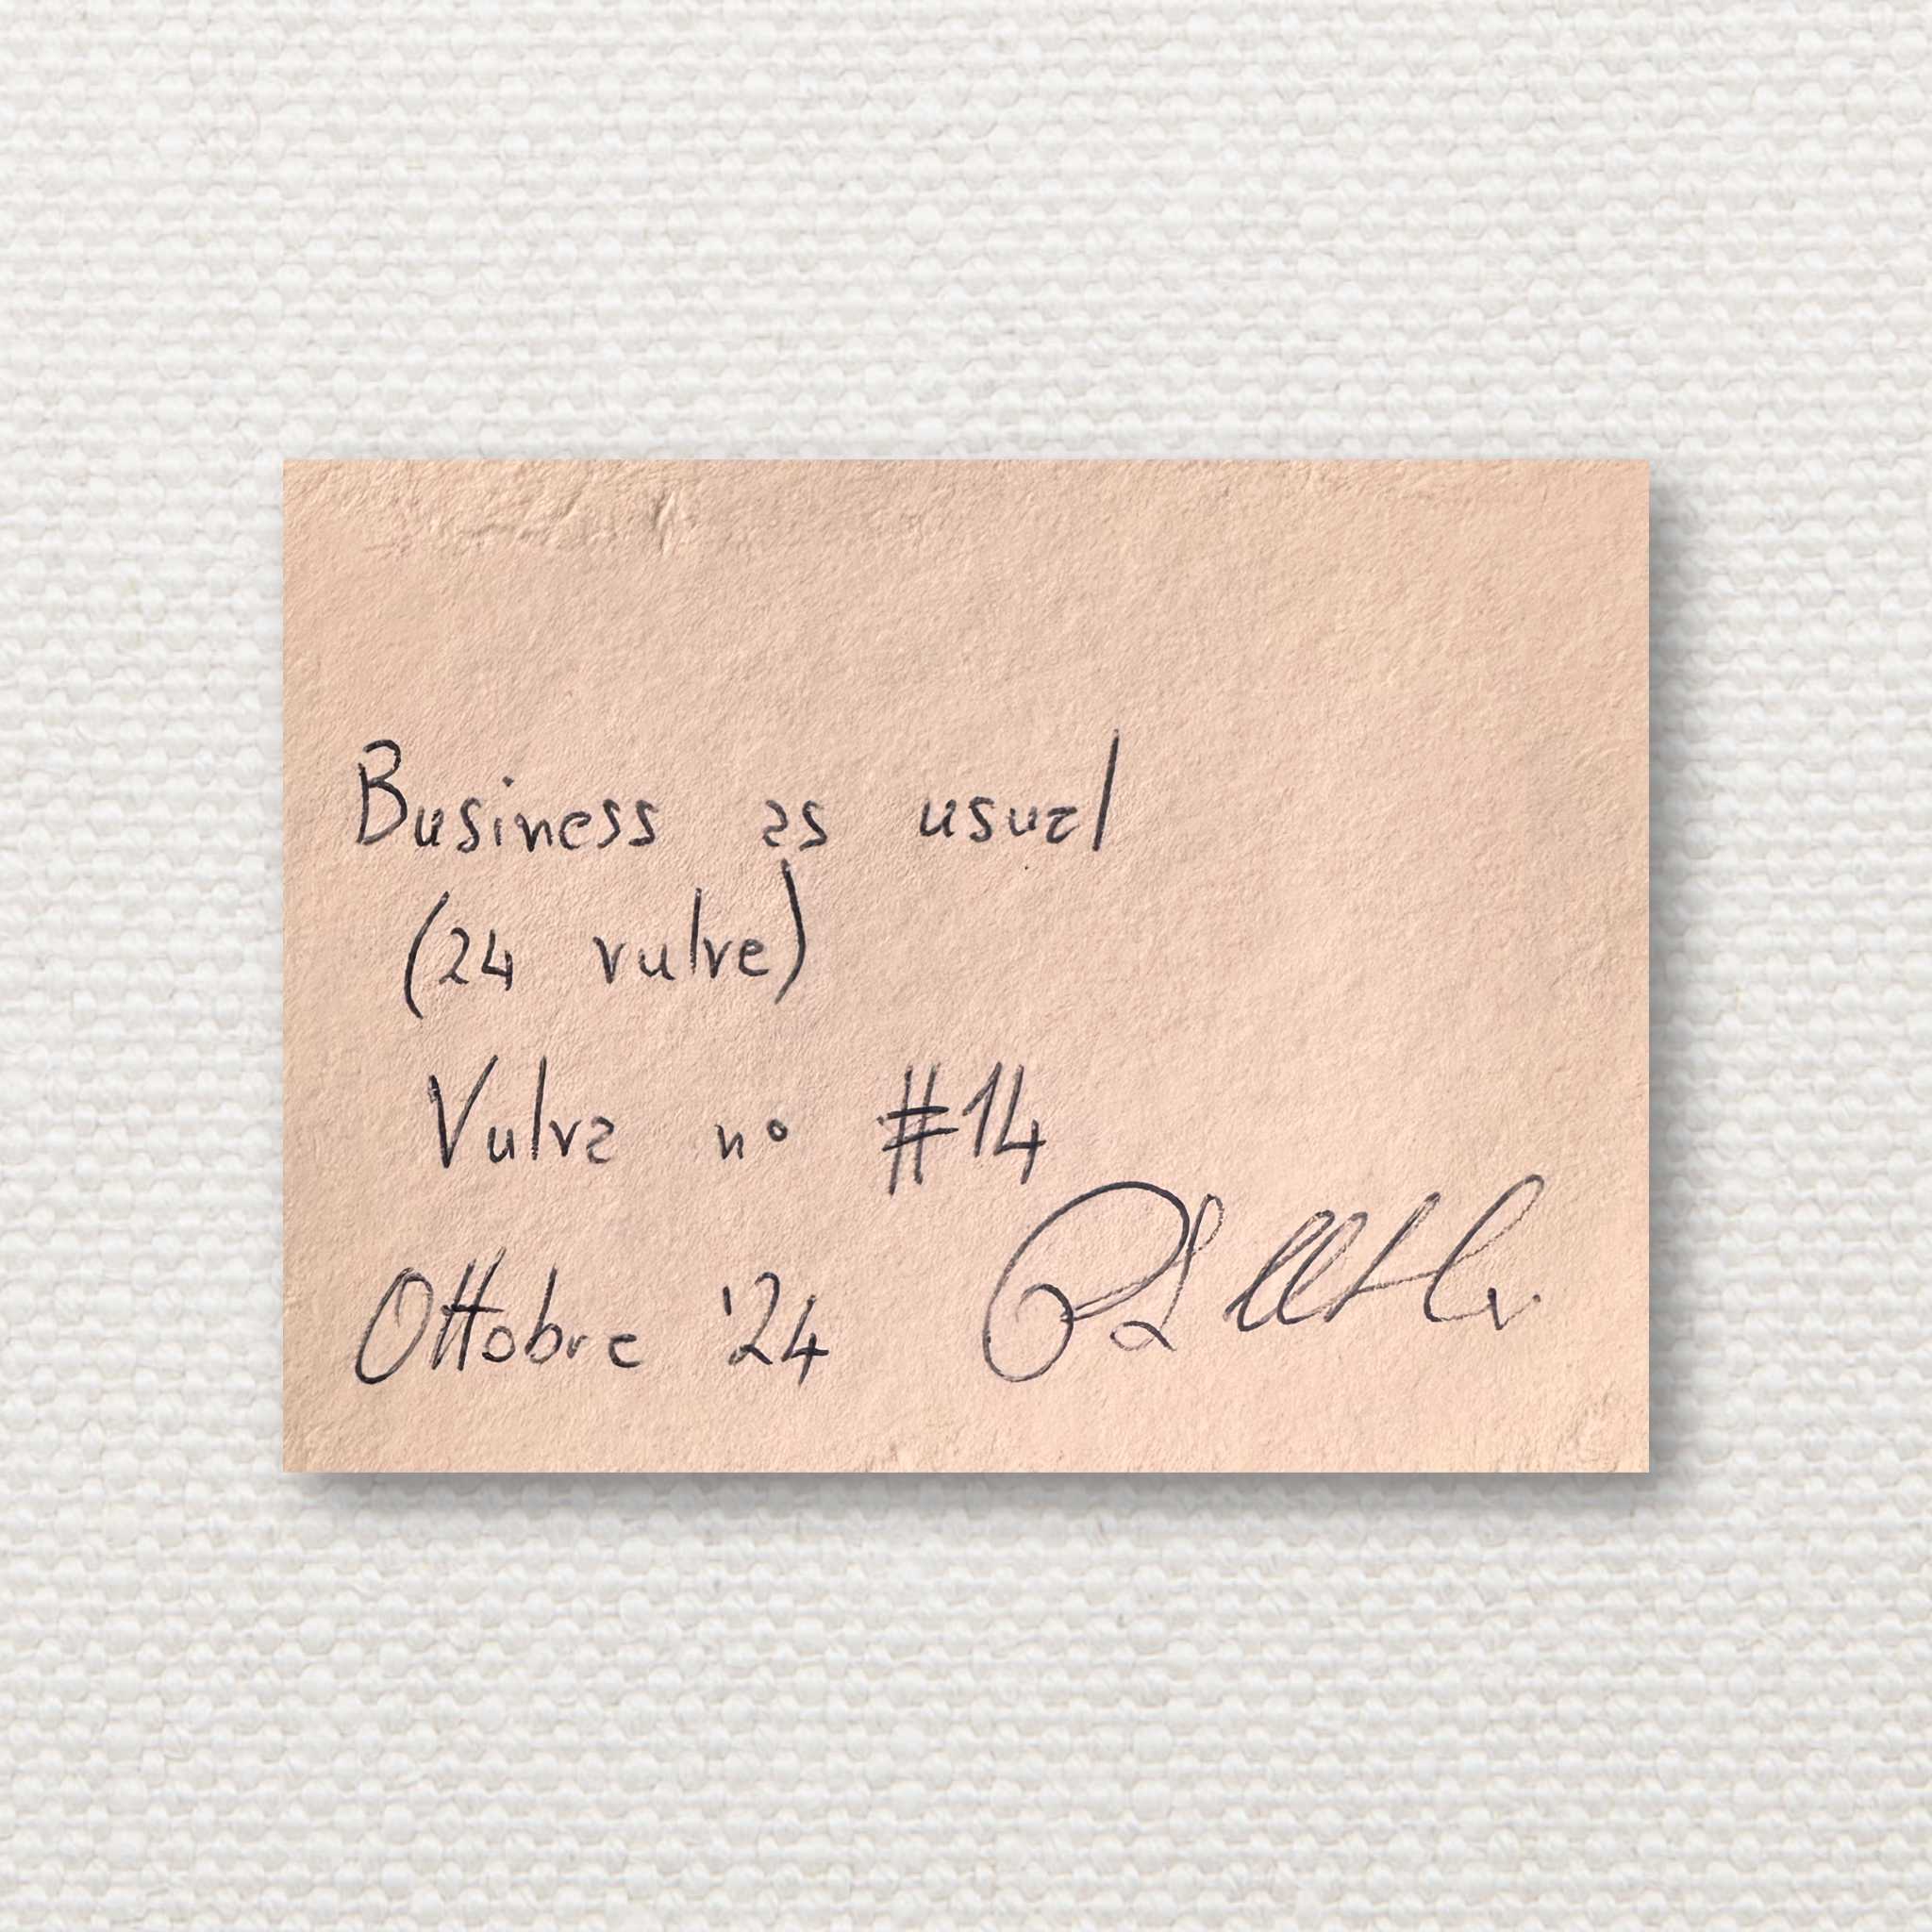 Business as usual
(24 vulve)
Vulva n° #14
Ottobre '24